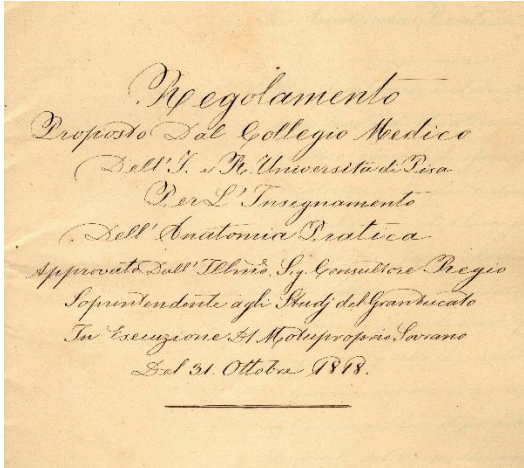 Regolamento
Proposto Dal Collegio Medico
Dell' I. e R. Università di Pisa
Per L' Insegnamento
Dell' Anatomia Pratica
Approvato Dall' Illmo. Sig. Consultore Regio
Soprintendente agli Studj del Granducato
In Esecuzione Del Motuproprio Sovrano
Del 31. Ottobre 1818.